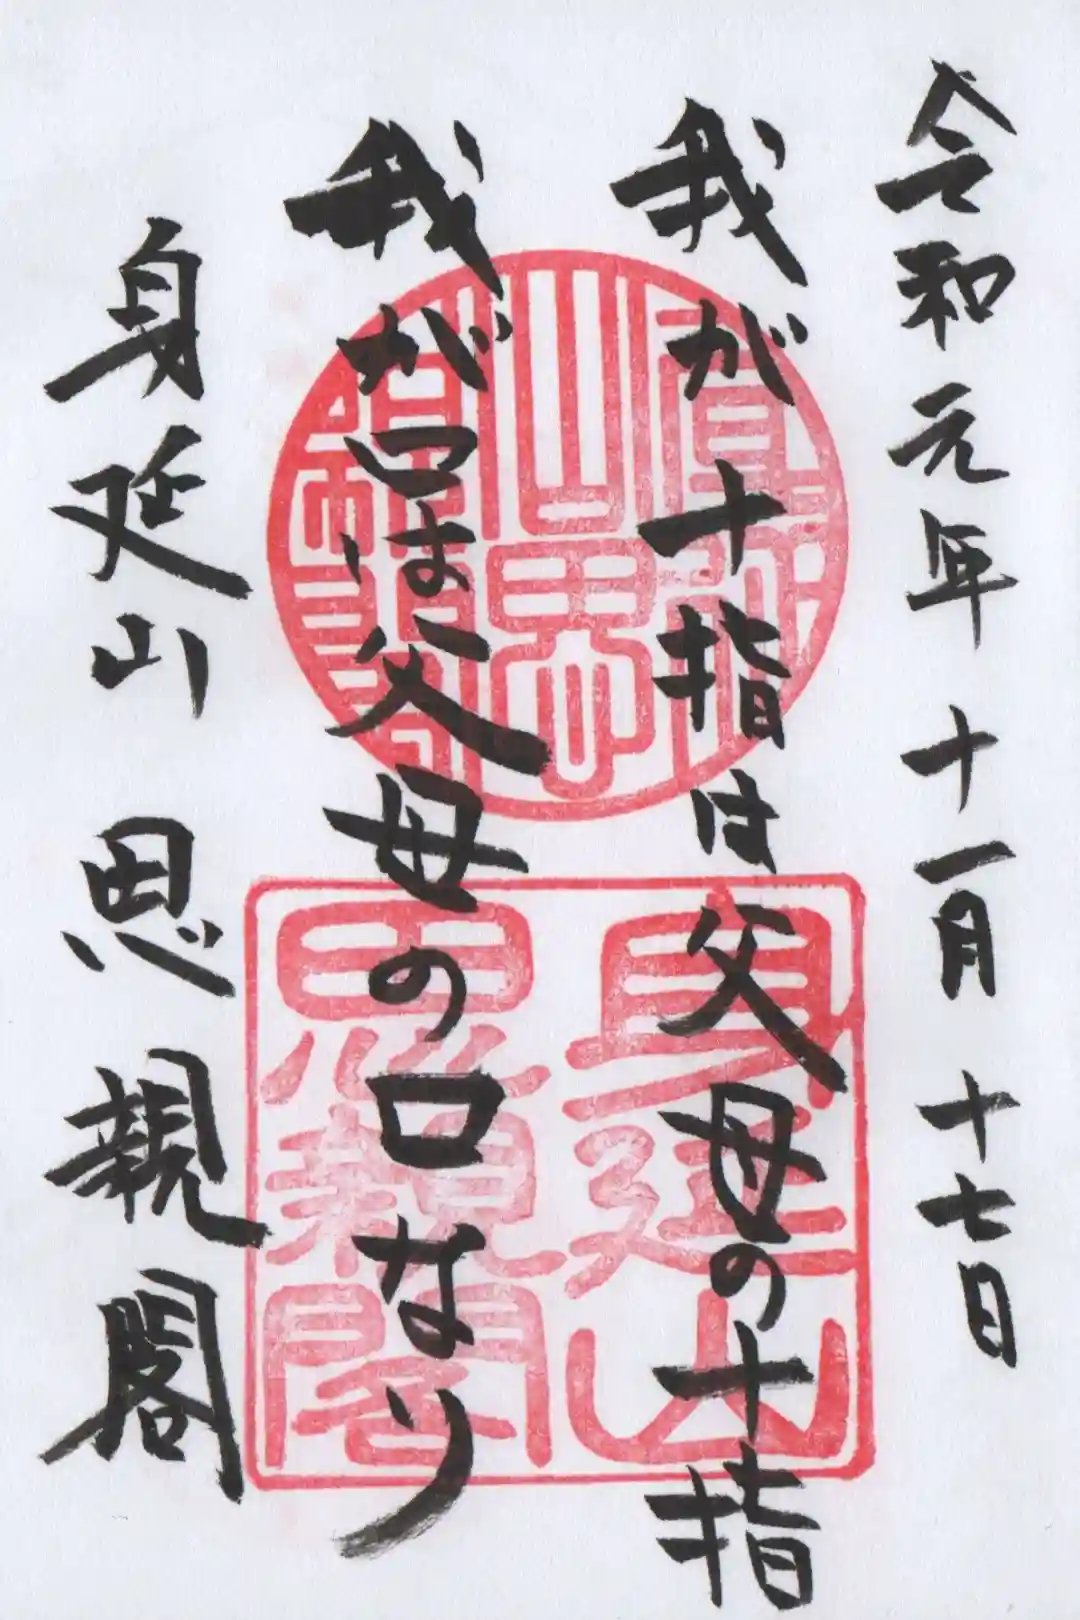 令和元年 十一月 十七日
我が十指は父母の十指
我が口は父母の口なり
身延山 思親閣
身延山
思親閣